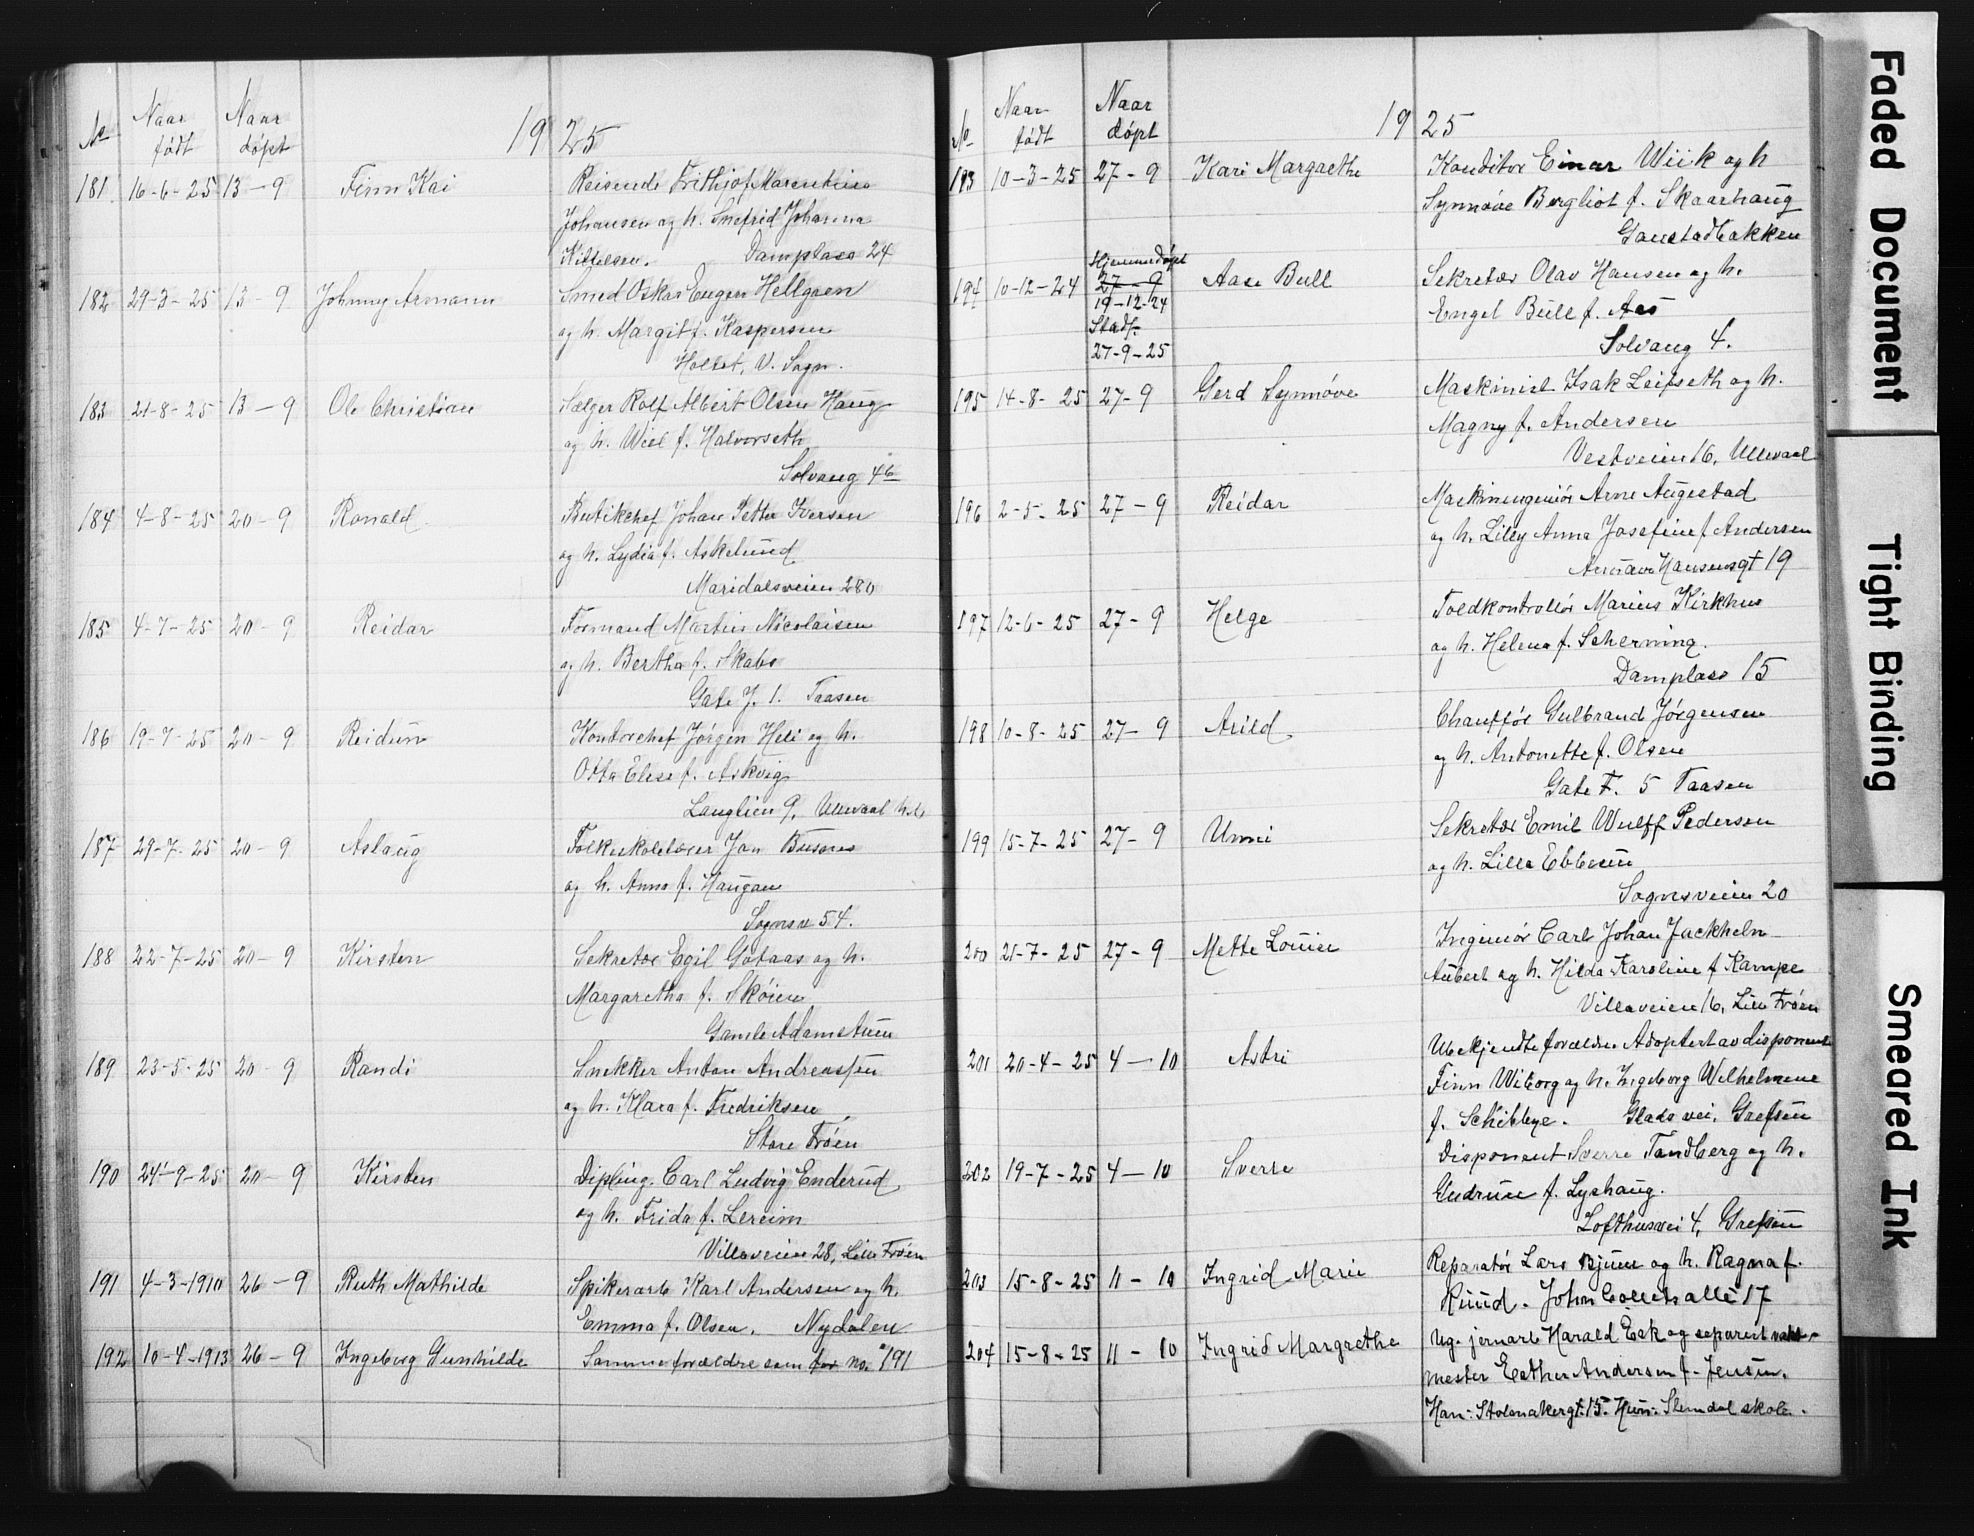 No Naar født Naar døpt 1925
181 16-6-25 13-9 Finn Kai Reisende Frithjof Marentius
Johansen og h. Snefrid Johanna
Kittelsen. Damplass 24
182 29-3-25 13-9 Johnny Armann Smed Oskar Eugen Hellgren
og h. Margit f. Kaspersen
Holtet, V. Sogn.
183 21-8-25 13-9 Ole Christian Sælger Rolf Albert Olsen Haug
og h. Wiel f. Halvorseth
Solvang 4b
184 4-8-25 20-9 Ronald Butikchef Johan Petter Iversen
og h. Lydia f. Askelund
Maridalsveien 280
185 4-7-25 20-9 Reidar Formand Martin Nicolaisen
og h. Bertha f. Skabo
Gate J. 1. Taasen
186 19-7-25 20-9 Reidun Kontorchef Jørgen Heli og h.
Otta Elise f. Askvig
Langlien 9, Ullevaal
187 29-7-25 20-9 Aslaug Folkeskolelærer Jon Busnes
og h. Anna f. Haugan
Sognsv 54.
188 22-7-25 20-9 Kirsten Sekretær Egil Gotaas og h.
Margaretha f. Skøien
Gamle Adamstuen
189 23-5-25 20-9 Randi Snekker Anton Andreassen
og h. Klara f. Fredriksen
Store Frøen
190 24-9-25 20-9 Kirsten Dipl.ing. Carl Ludvig Enderud
og h. Frida f. Lereim
Villaveien 28, Lille Frøen
191 4-3-1910 26-9 Ruth Mathilde Spikerarb Karl Andersen og h.
Emma f. Olsen. Nydalen
192 10-4-1913 26-9 Ingeborg Gunhilde Samme forældre som for no. 191
No Naar født Naar døpt 1925
193 10-3-25 27-9 Kari Margrethe Konditor Einar Wiik og h
Synnøve Bergliot f. Skaarhaug
Gaustadbakken
194 10-12-24 Hjemmedøpt 27-9 19-12-24 Stadf. 27-9-25 Aase Bull Sekretær Olav Hansen og h.
Engel Bull f. Aas
Solvang 4.
195 14-8-25 27-9 Gerd Synnøve Maskinist Isak Leifseth og h.
Magny f. Andersen
Vestveien 16, Ullevaal
196 2-5-25 27-9 Reidar Maskiningeniør Arne Augestad
og h. Lilly Anna Josefine f Andersen
Hansensgt 19
197 12-6-25 27-9 Helge Toldkontrollør Marius Kirkhus
og h. Helena f. Scherning.
Damplass 15
198 10-8-25 27-9 Arild Chauffør Gulbrand Jørgensen
og h. Antonette f. Olsen
Gate F. 5 Taasen
199 15-7-25 27-9 Unni Sekretær Emil Wulff Pedersen
og h. Lilla Ebbesen
Sognsveien 20
200 21-7-25 27-9 Mette Louise Ingeniør Carl Johan Jackheln
Aubert og h. Hilda Karoline f Kampe
Villaveien 16, Lille Frøen
201 20-4-25 4-10 Astri Ubekjendte forældre. Adoptert av disponent
Finn Wiborg og h. Ingeborg Wilhelmine
f. Schibbye. Glads vei, Grefsen
202 19-7-25 4-10 Sverre Disponent Sverre Tandberg og h.
Gudrun f. Lyshaug.
Lofthusvei 4, Grefsen
203 15-8-25 11-10 Ingrid Marie Reparatør Lars Bjuer og h. Ragna f.
Ruud. John Colletsallé 17
204 15-8-25 11-10 Ingrid Margrethe Ug. jernarb Harald Eek og separert vakt-
mester Esther Andersen f. Jensen.
Han: Stolmakergt. 15. Hun: Slemdal skole.
Faded Document
Tight Binding
Smeared Ink